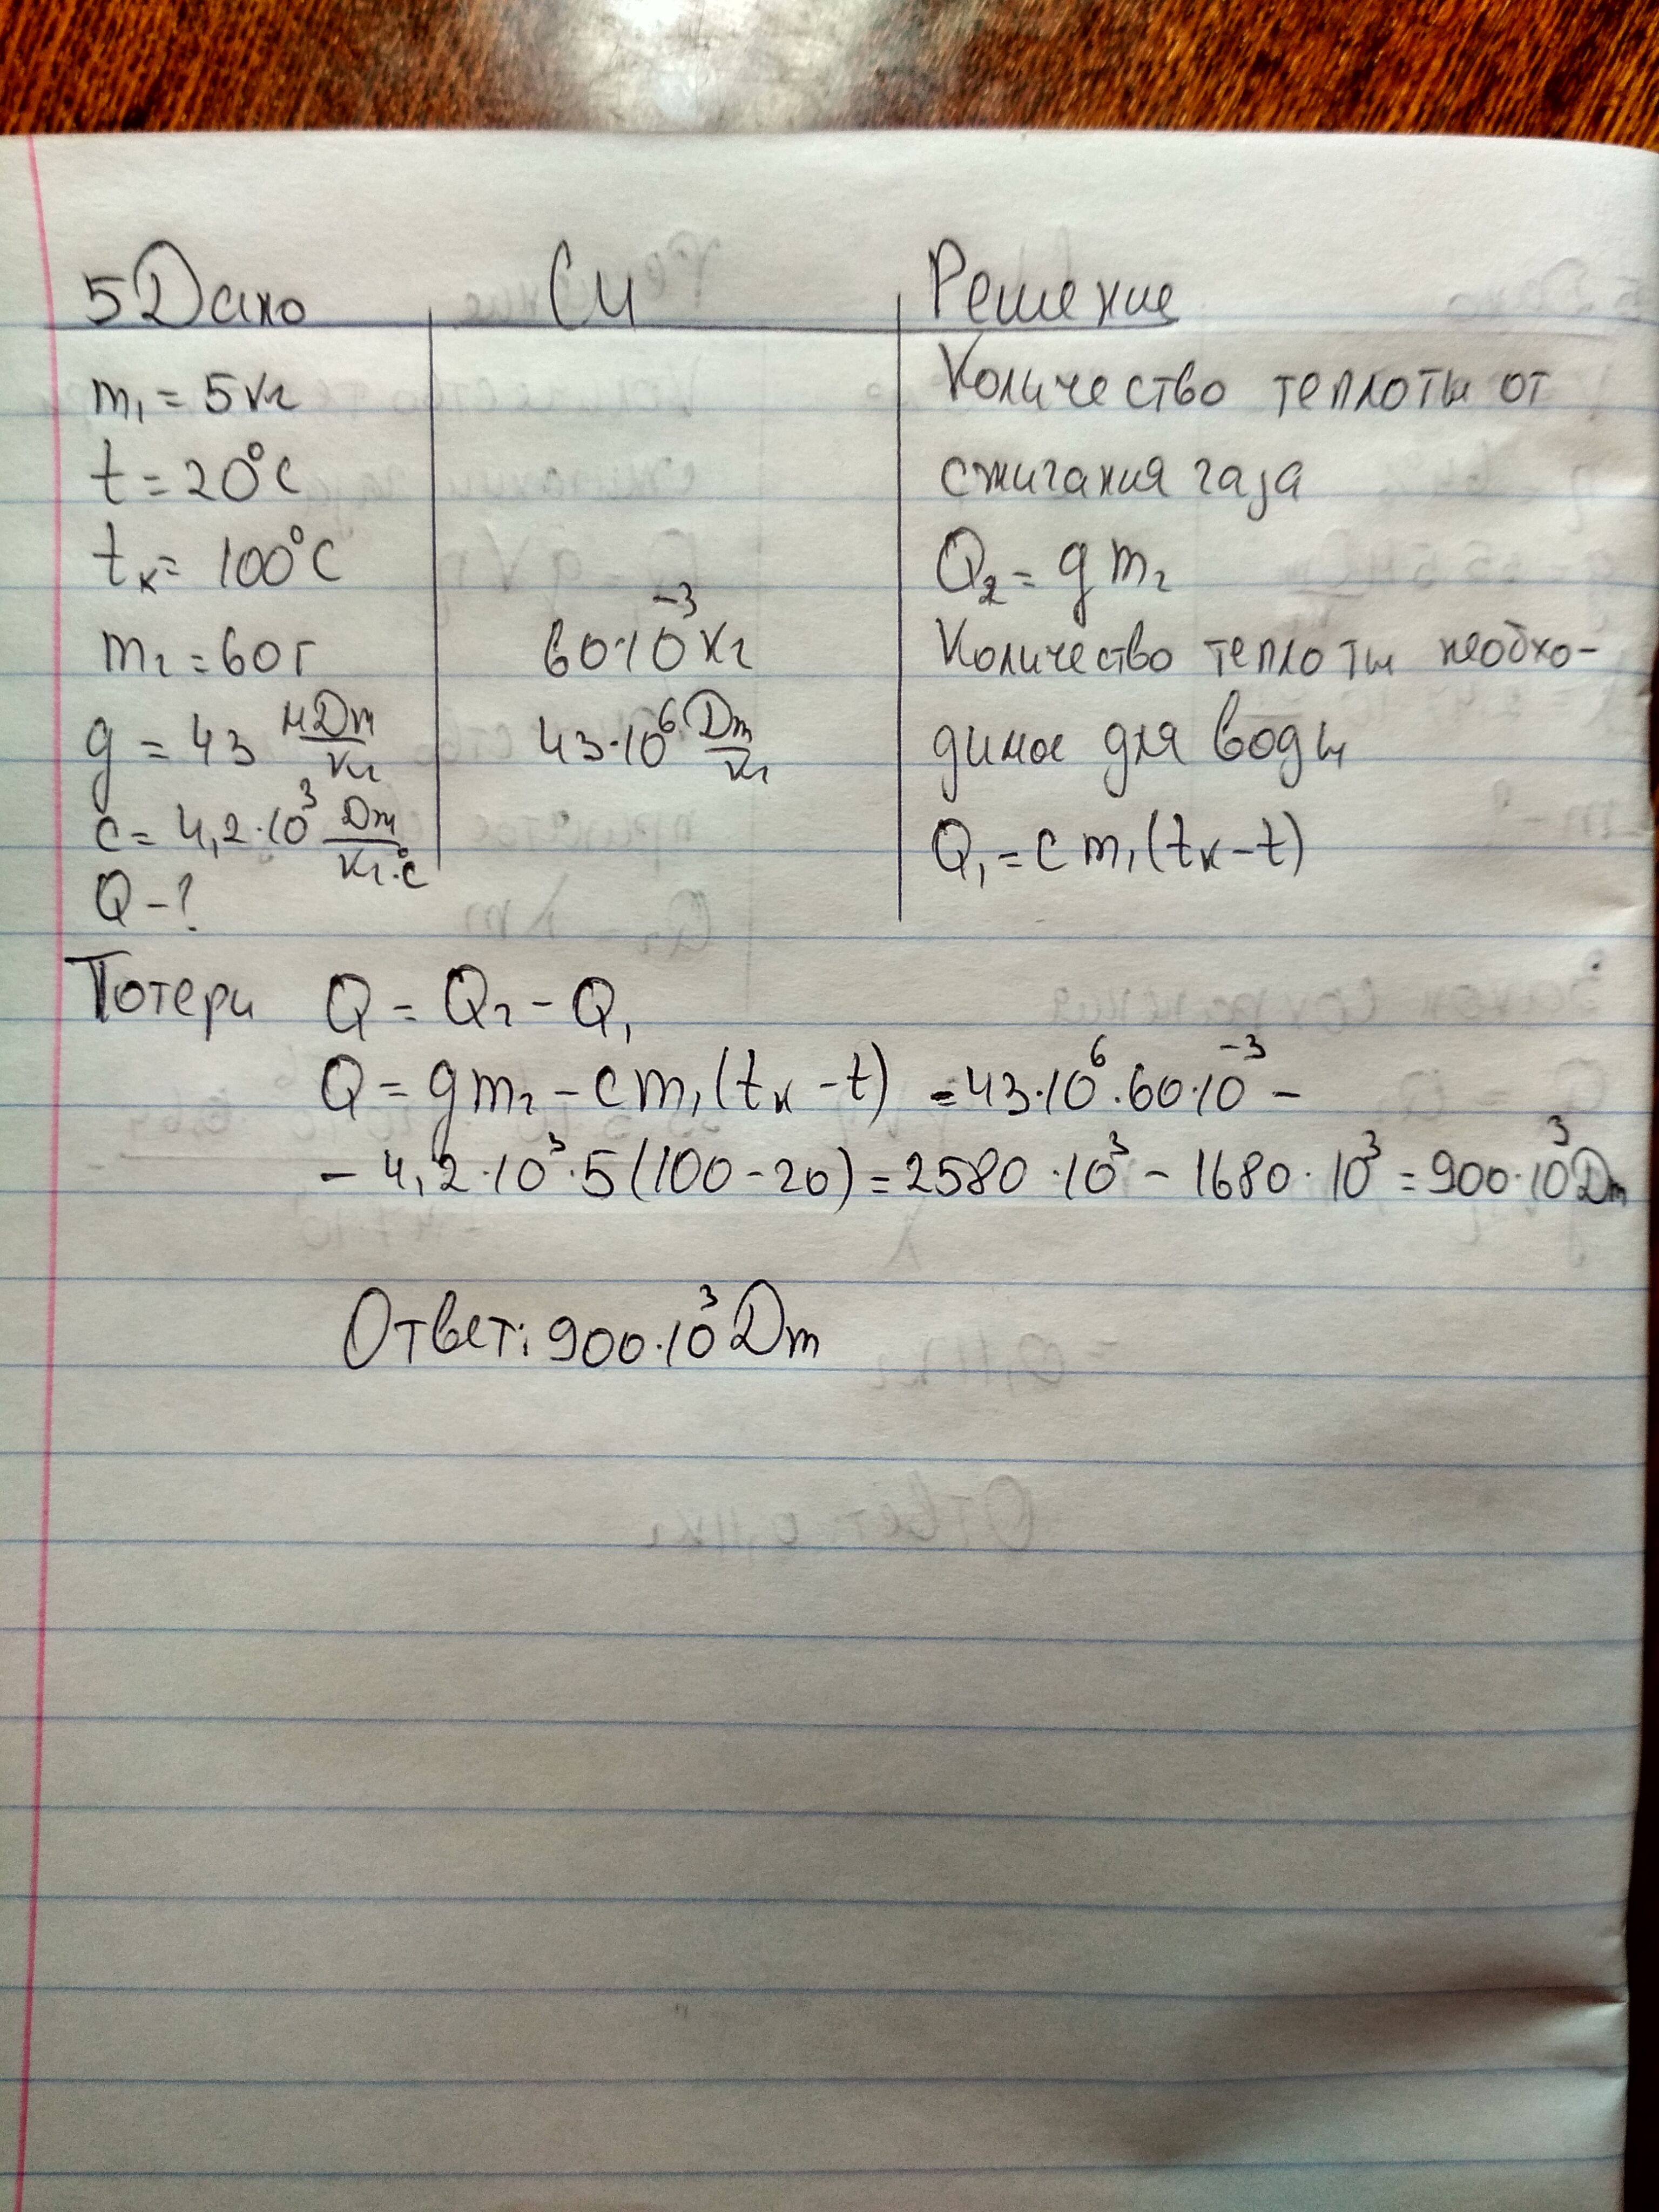 5 Дано СИ Решение
m₁ = 5 кг
t = 20°C
tк = 100°C
m₂ = 60 г 60·10⁻³ кг
q = 43 МДж/кг 43·10⁶ Дж/кг
c = 4,2·10³ Дж/кг·°C
Q - ?
Количество теплоты от
сжигания газа
Q₂ = q m₂
Количество теплоты необхо-
димое для воды
Q₁ = c m₁ (tк - t)
Потери Q = Q₂ - Q₁
Q = q m₂ - c m₁ (tк - t) = 43·10⁶·60·10⁻³ -
- 4,2·10³·5(100 - 20) = 2580·10³ - 1680·10³ = 900·10³ Дж
Ответ: 900·10³ Дж